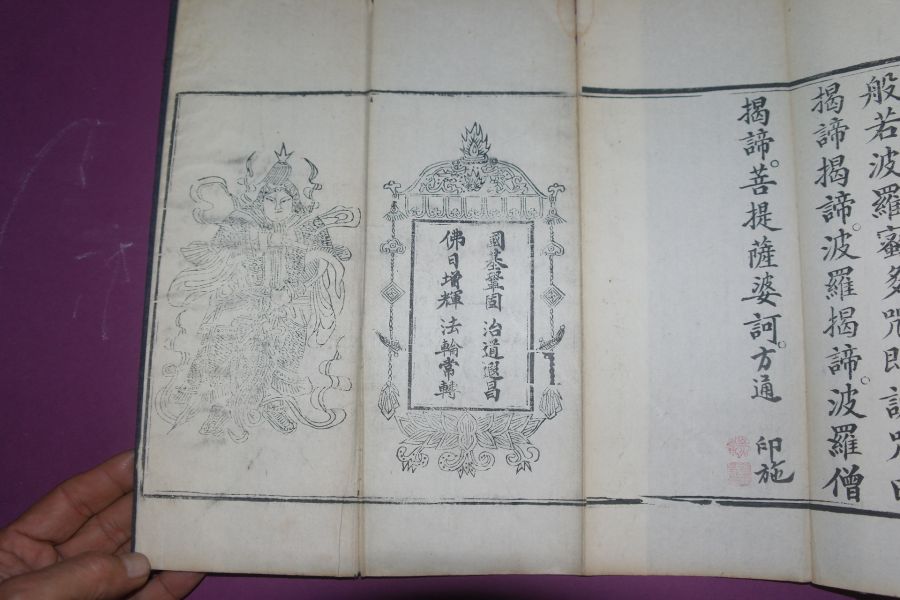 般若波羅蜜多咒即說咒曰
揭諦揭諦。波羅揭諦。波羅僧
揭諦。菩提薩婆訶。方通 印施
國基鞏固 治道遐昌
佛日增輝 法輪常轉